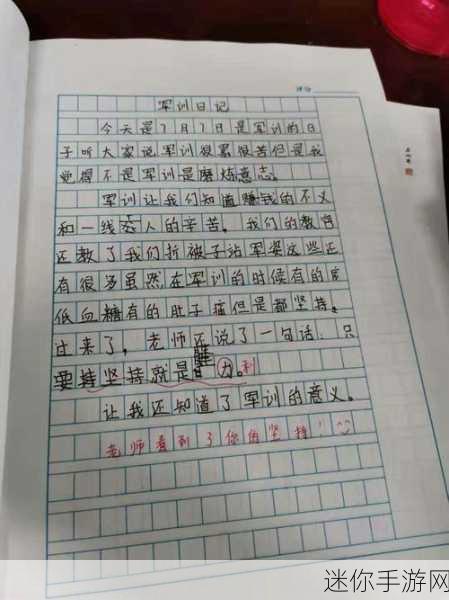 评分
军训日记
今天是7月7日是军训的日
子听大家说军训很累很苦但是我
觉得不是军训是磨炼意志。
军训让我们知道赚钱的不义
和一线人的辛苦。我们的教官
还教了我们折被子站军姿这些还
有很多虽然在军训的时候有的度
低血糖有的肚子疼但是都坚持
过来了。老师还说了一句话：只
要持坚持就是力。利
让我还知道了军训的意义。
老师看到了你的坚持！
迷你手游网